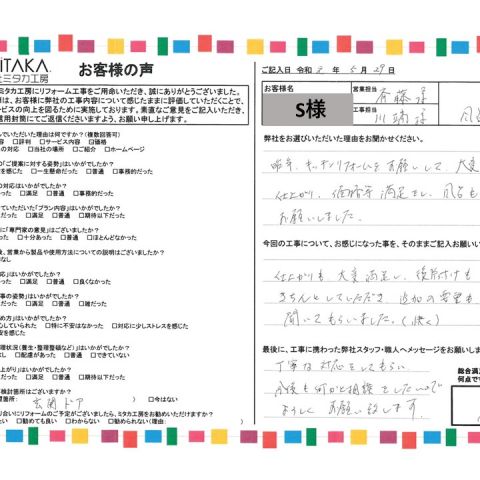 ITAKA
ミタカ工房
お客様の声
ミタカ工房にリフォーム工事をご用命いただき、誠にありがとうございました。
は、お客様に弊社の工事内容について感じたままに評価していただくことで、
ービスの向上を図るために実施しております。素直なご意見をご記入いただき、
信用封筒にてご返信いただきますよう、お願い申し上げます。
んでいただいた理由は何ですか?(複数回答可)
容 □評判 □サービス内容 □価格
の対応 □当社の場所 □ご紹介 □ホームページ
の「ご提案に対する姿勢」はいかがでしたか?
を感じた □一生懸命だった □普通 □事務的だった
の対応はいかがでしたか?
だった □満足 □普通 □事務的だった
ていただいた「プラン内容」はいかがでしたか?
だった □満足 □普通 □期待以下だった
に「専門家の意見」はございましたか?
った □十分あった □普通 □ほとんどなかった
後、営業から製品や使用方法についての説明はございましたか?
なし
応」はいかがでしたか?
だった □満足 □普通 □良くなかった
事の姿勢」はいかがでしたか?
だった □満足 □普通 □雑だった
め方」はいかがでしたか?
心していられた □特に不安はなかった □対応に少しストレスを感じた
安を感じた
理状況(養生・整理整頓など)はいかがでしたか?
届いていた □配慮があった □普通 □できていない
上がり」はいかがでしたか?
だった □満足 □普通 □期待以下だった
検討箇所はございますか?
箇所: 玄関ドア ) □今はない
り合いにリフォームのご予定がございましたら、ミタカ工房をお勧めいただけますか?
たい □勧めても良い □わからない □勧められない(理由: )
ご記入日 令和 元 年 5 月 29 日
お客様名
S様
営業担当 斉藤 様
工事担当 川端 様
弊社をお選びいただいた理由をお聞かせください。
昨年、キッチンリフォームをお願いして、大変
仕上がり、価格等 満足をし、風呂も
お願いしました。
今回の工事について、お感じになった事を、そのままご記入お願い
仕上がりも 大変 満足し、後片付けも
きちんとしていただき 追加の要望も
聞いてもらいました。(快く)
最後に、工事に携わった弊社スタッフ・職人へメッセージをお願いしま
丁寧な対応をしてもらい、
今後も何かと相談をしたいので
よろしく お願い致します。
総合満
何点で